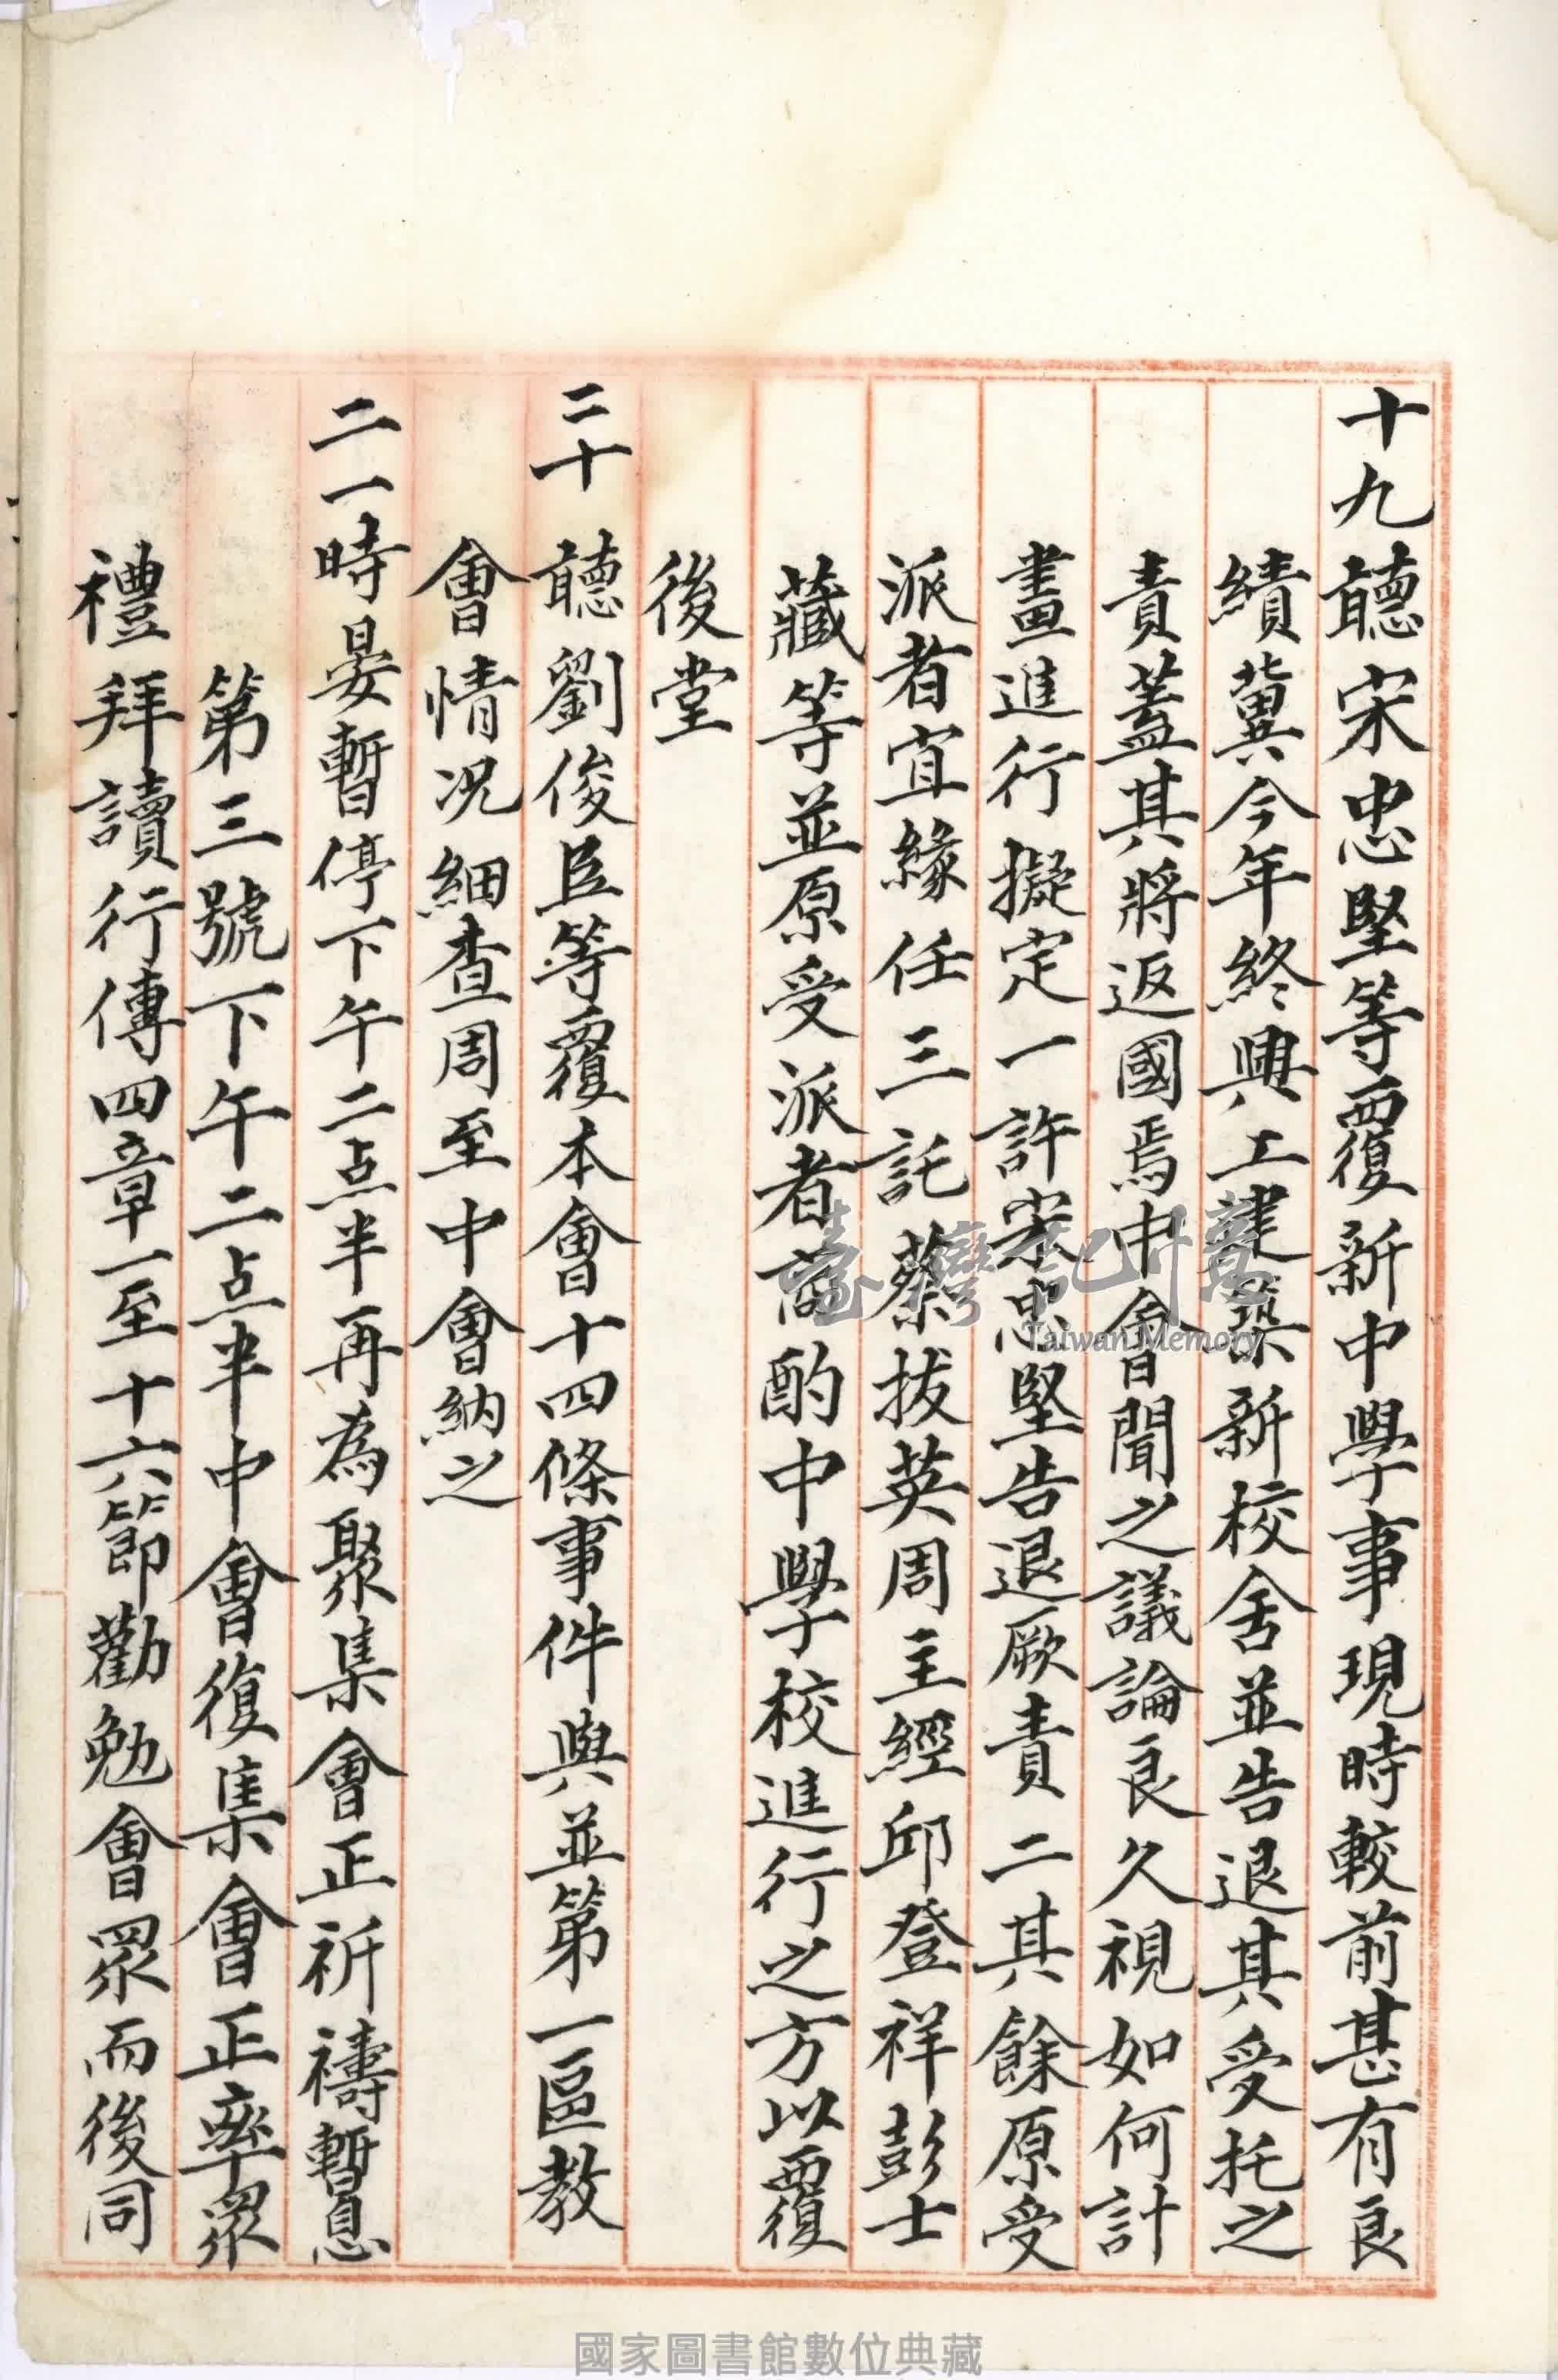 十九聽宋忠堅等覆新中學事現時較前甚有良
績冀今年終興工建築新校舍並告退其受托之
責蓋其將返國焉中會聞之議論良久視如何計
畫進行擬定一許宋忠堅告退厥責二其餘原受
派者宜緣任三託蔡拔英周主經邱登祥彭士
藏等並原受派者商酌中學校進行之方以覆
後堂
二十聽劉俊臣等覆本會十四條事件與並第一區教
會情況細查周至中會納之
二一時晏暫停下午二点半再為聚集會正祈禱暫息
第三號下午二点半中會復集會正率眾
禮拜讀行傳四章一至十六節勸勉會眾而後同
臺灣記憶
Taiwan Memory
國家圖書館數位典藏